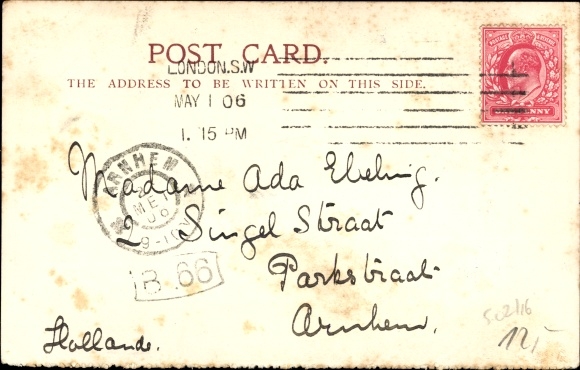 POST CARD.
THE ADDRESS TO BE WRITTEN ON THIS SIDE.
LONDON.S.W
MAY 1 06
1. 15 PM
POSTAGE REVENUE
ONE PENNY
ARNHEM
MEI
06
Madame Ada Ebeling.
2 Singel Straat
Parkstraat
Arnhem.
B. 66
Hollande.
502/16
12,-